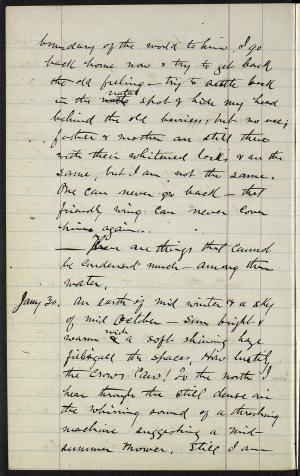 boundary of the world to him. I go
back home now & try to get back
the old feeling – try to settle back
natal
in the spot & hide my head
behind the old barriers, but no use;
father & mother are still there
with their whitened locks & are the
same, but I am not the same.
One can never go back – that
friendly wing can never cover
him again.
— There are things that cannot
be condensed much – among them
water.
Jany 30. An earth of mid winter & a sky
of mid October – Sun bright &
with
warm & a soft shining haze
all the spaces. How lustily
the Crows Caw! To the north I
hear through the still dense air
the whirring sound of a threshing
machine suggesting a mid-
summer mower. Still I am